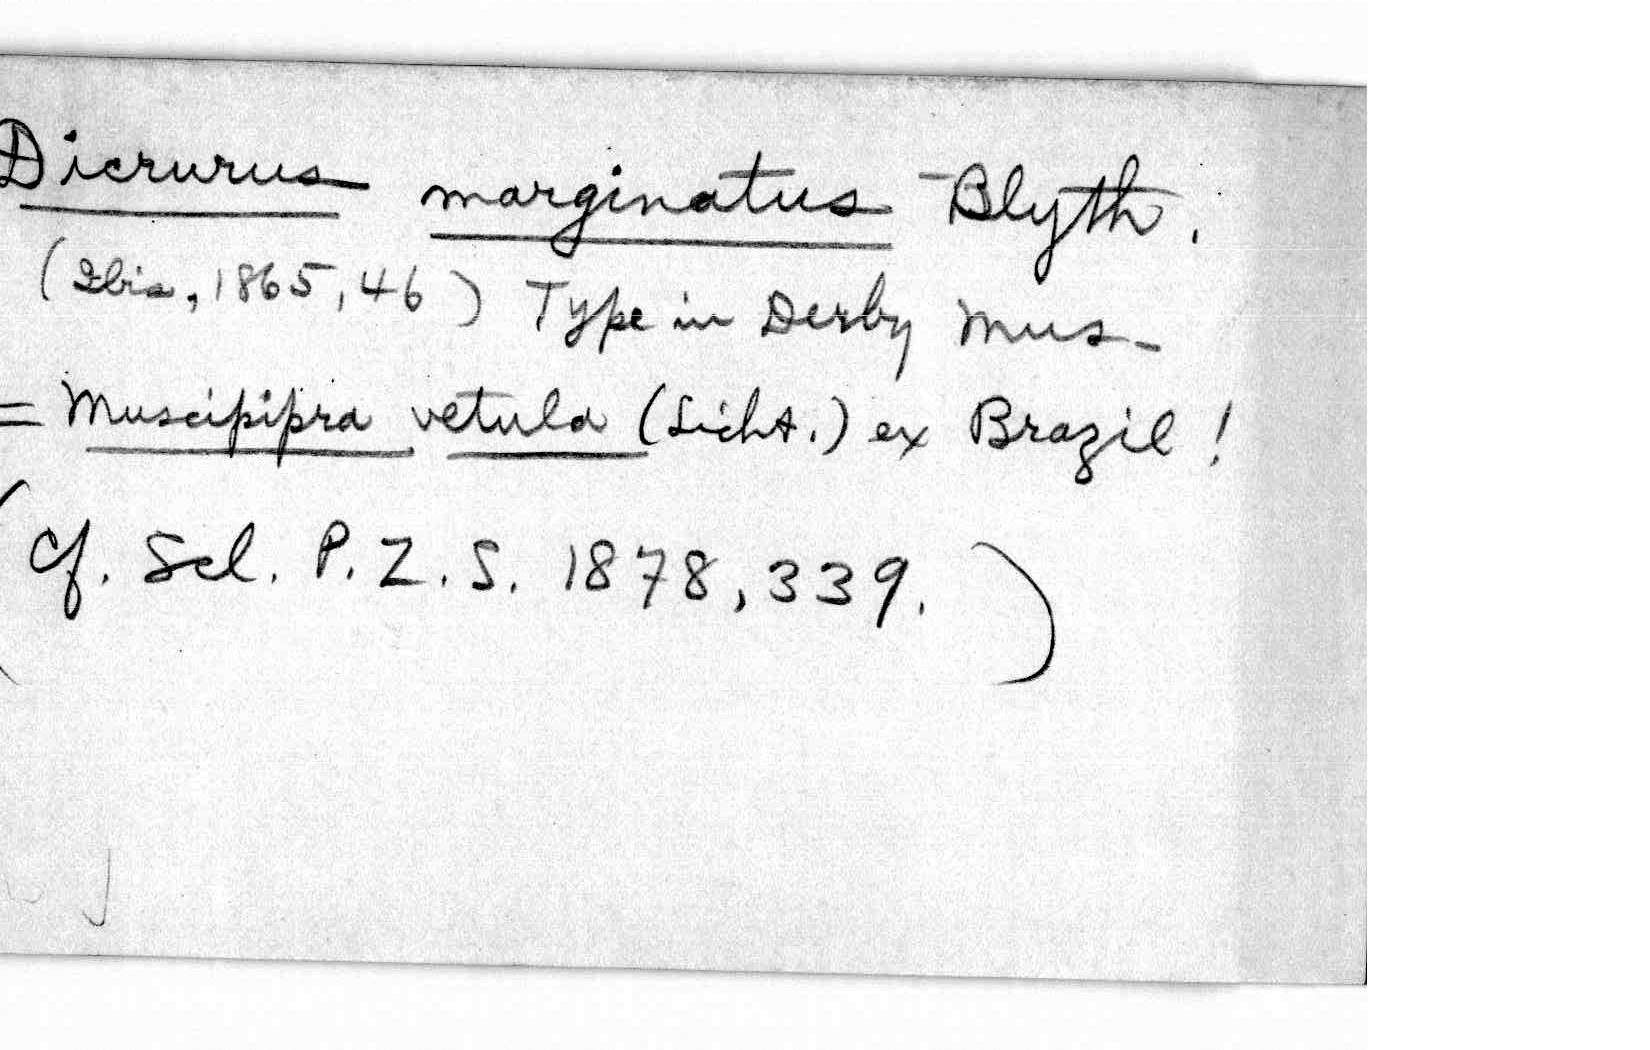 Dicrurus marginatus Blyth.
(Ibis, 1865, 46) Type in Derby Mus-
= Muscipipra vetula (Licht.) ex Brazil!
(Cf. Scl. P.Z.S. 1878, 339.)